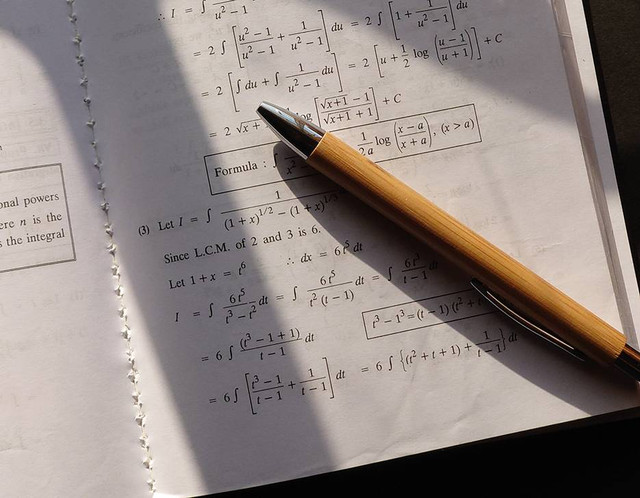 onal powers
ere n is the
s the integral
∴ I = ∫ u² − 1
= 2 ∫ [ (u² − 1)/(u² − 1) + 1/(u² − 1) ] du = 2 ∫ [ 1 + 1/(u² − 1) ] du
= 2 [ ∫ du + ∫ 1/(u² − 1) du ] = 2 [ u + 1/2 log ( (u − 1)/(u + 1) ) ] + C
= 2 √x + log [ (√x+1 − 1)/(√x+1 + 1) ] + C
Formula : ∫ x² 1/2a log ( (x − a)/(x + a) ), (x > a)
(3) Let I = ∫ 1/((1 + x)^1/2 − (1 + x)^1/
Since L.C.M. of 2 and 3 is 6.
Let 1 + x = t⁶ ∴ dx = 6t⁵ dt
I = ∫ 6t⁵/(t³ − t²) dt = ∫ 6t⁵/(t² (t − 1)) dt = ∫ 6t³/(t − 1
t³ − 1³ = (t − 1) (t² + t
= 6 ∫ (t³ − 1 + 1)/(t − 1) dt
= 6 ∫ [ (t³ − 1)/(t − 1) + 1/(t − 1) ] dt = 6 ∫ { (t² + t + 1) + 1/(t − 1) } dt